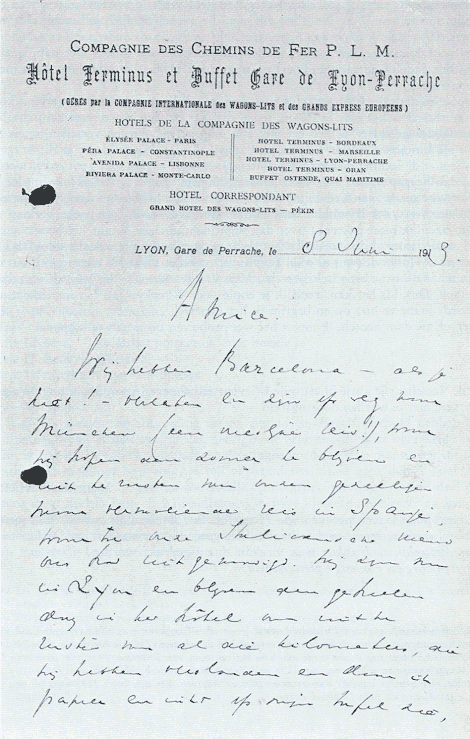 COMPAGNIE DES CHEMINS DE FER P. L. M.
Hôtel Terminus et Buffet Gare de Lyon-Perrache
(GÉRÉS par la COMPAGNIE INTERNATIONALE des WAGONS-LITS et des GRANDS EXPRESS EUROPÉENS)
HOTELS DE LA COMPAGNIE DES WAGONS-LITS
ÉLYSÉE PALACE - PARIS
PÉRA PALACE - CONSTANTINOPLE
AVENIDA PALACE - LISBONNE
RIVIERA PALACE - MONTE-CARLO
HOTEL TERMINUS - BORDEAUX
HOTEL TERMINUS - MARSEILLE
HOTEL TERMINUS - LYON-PERRACHE
HOTEL TERMINUS - ORAN
BUFFET OSTENDE, QUAI MARITIME
HOTEL CORRESPONDANT
GRAND HOTEL DES WAGONS-LITS — PÉKIN
LYON, Gare de Perrache, le 8 Juni 1913.
Amice.
Wij hebben Barcelona – als je
ziet! – verlaten en zijn op weg naar
München (een reis!), waar
wij hopen den zomer te blijven en
uit te rusten van onzen
reis in Spanje,
onze
ons had uitgenoodigd. Wij zijn nu
in Lyon en blijven den geheelen
dag in het hôtel om uit te
rusten van al die kilometers, die
wij hebben en daar ik
papier en inkt op mijn tafel zie,